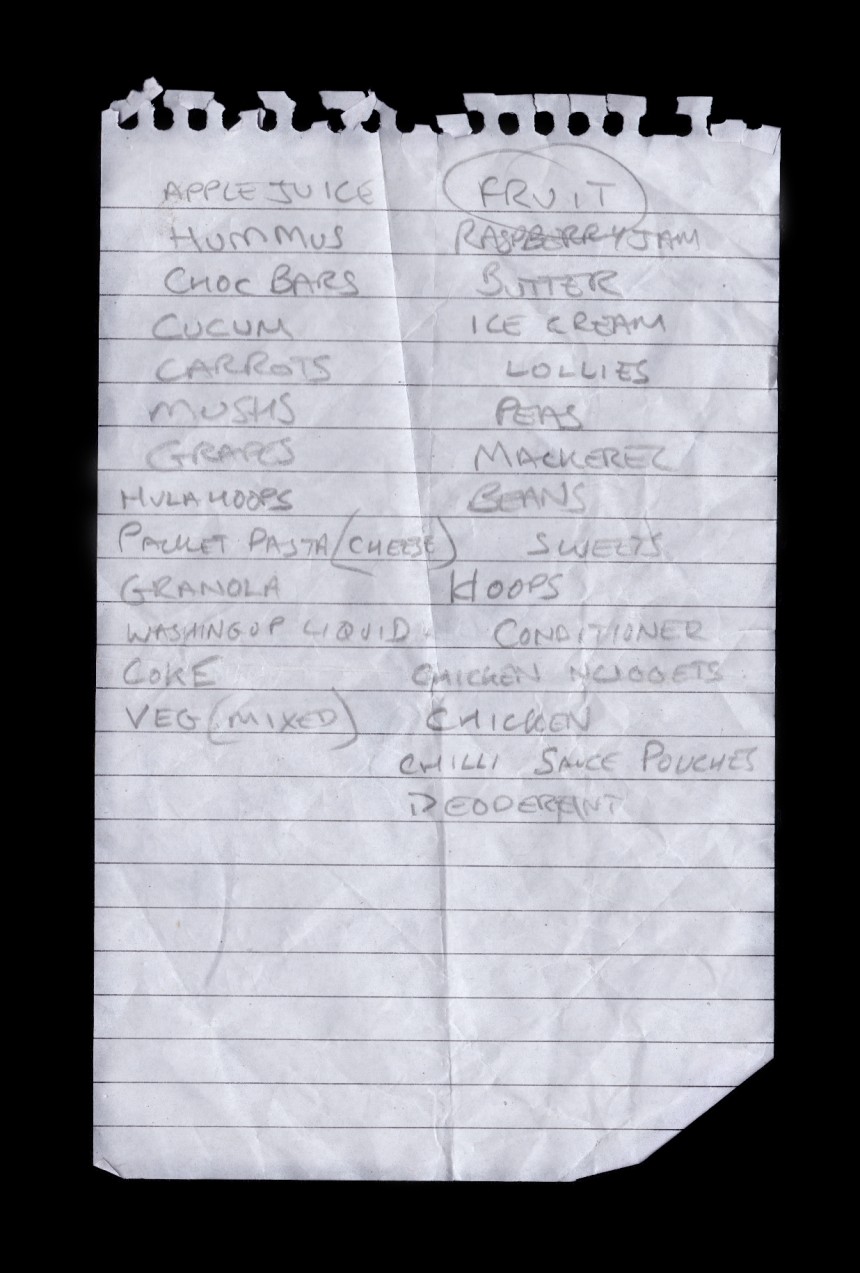 APPLE JUICE
HUMMUS
CHOC BARS
CUCUM
CARROTS
MUSHS
GRAPES
HULA HOOPS
PACKET PASTA (CHEESE)
GRANOLA
WASHING UP LIQUID
COKE
VEG (MIXED)
FRUIT
RASPBERRY JAM
BUTTER
ICE CREAM
LOLLIES
PEAS
MACKEREL
BEANS
SWEETS
HOOPS
CONDITIONER
CHICKEN NUGGETS
CHICKEN
CHILLI SAUCE POUCHES
DEODERENT